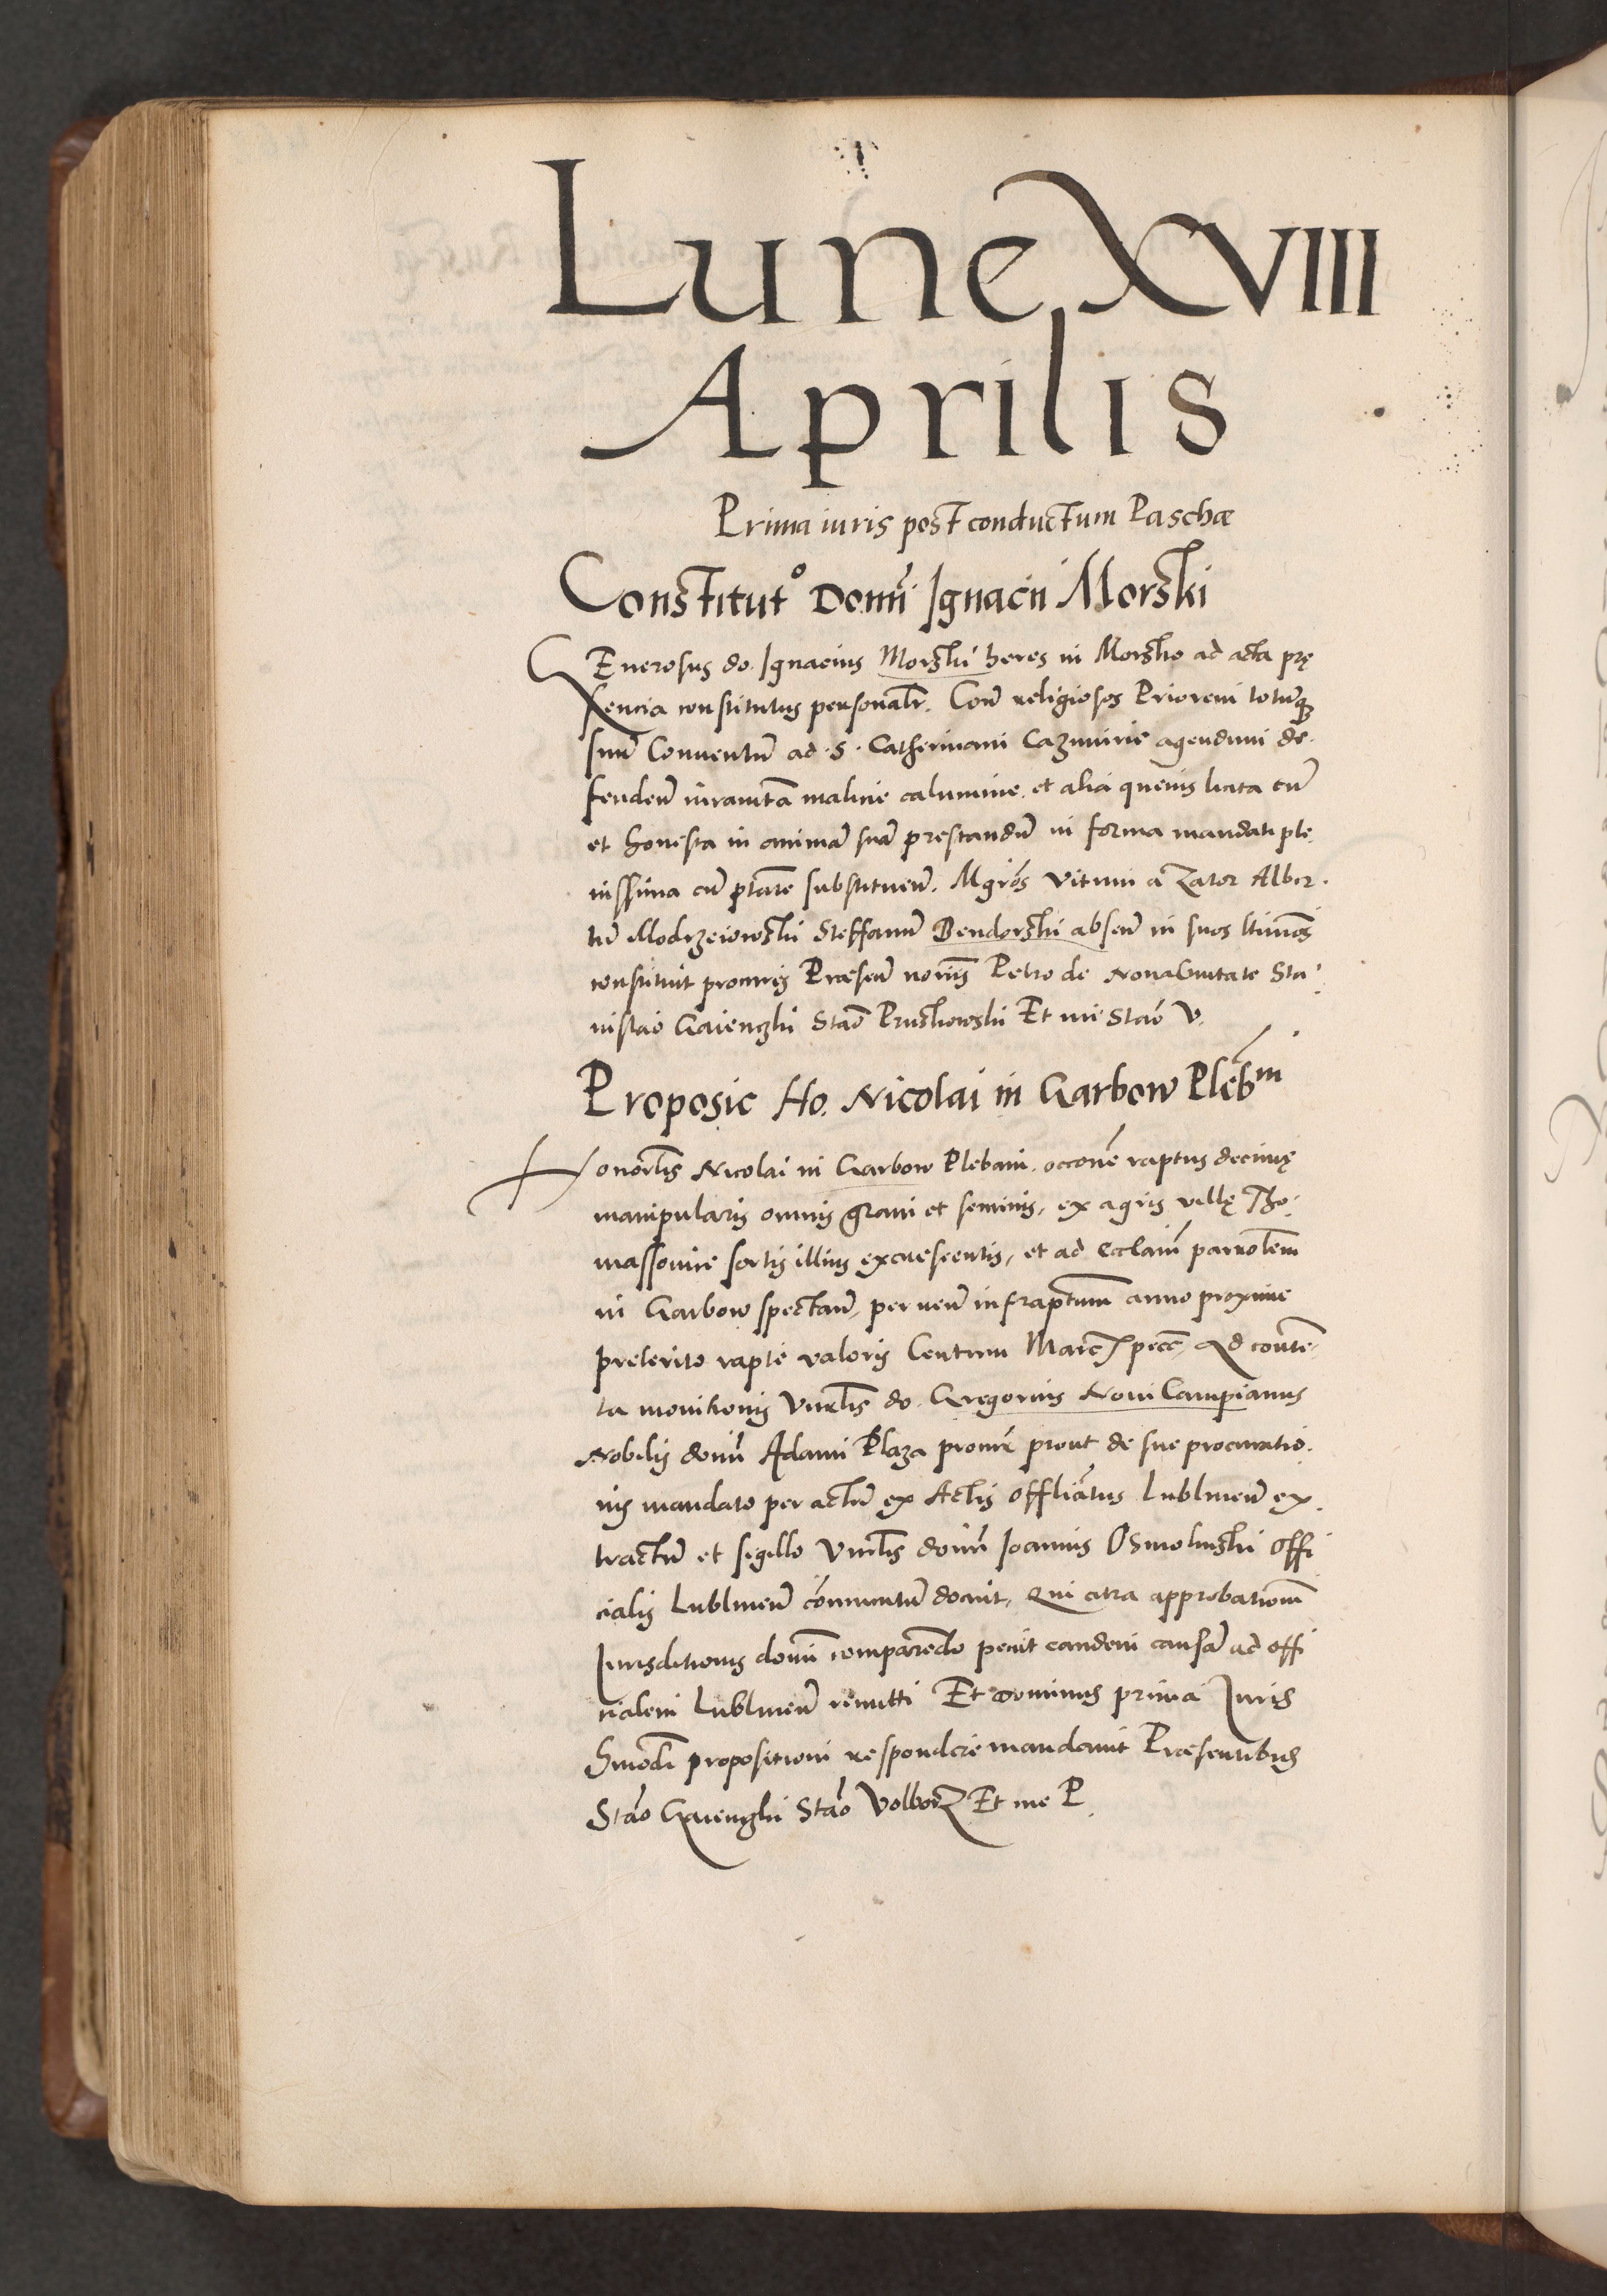 Lune XVIII
Aprilis
Prima iuris post conductum Paschæ
Constitut° Domī Ignacii Morski
GEnerosus do. Ignacius Morski heres in Morsko ad acta prę
sencia constitutus personalr̄. Con̄ religiosos Priorem totumqȝ
suū Conuentū ad .S. Catherinam Cazimirie agendum de
fendeñ iuramt̄a malicie calumnie et alia quevis licita cū
et honesta in animā suā prestandū in forma mandati ple
nissima cū ptāte substitueñ. Mgrōs Vitum a Zator Alber.
tū Modrzeiowski Steffanū Bendorski abseñ in suos ltimōs
constituit procuris Præseñ noriis Petro de Nova Civitate Sta
nislao Gaienzki Stāo Pruskowski Et me Stāo V.
Proposic Ho. Nicolai in Garbow Plēbni
Honorlis Nicolai in Garbow Plebani. occone raptus decimę
manipularis omnis grani et seminis, ex agris villę Tho
massovice sortis illius excrescentis, et ad Ecclaiñ parrolem
in Garbow spectañ, per ueñ infraptum anno proxime
preterito rapte valoris Centum Marc pec. Ad conte
ta monitionis Vnrlis do. Gregorius Novi Campianus
Nobilis domī Adami Plaza procur prout de sue procuratio
nis mandato per actū ex Actis offlīatus Lublineñ ex
tractū et sigillo Vnrlis domī Joannis Osmolinski Offi
cialis Lublineñ cōmunitū docuit, Qui citra approbationem
Jurisditionis domī comparendo petiit eandem causā ad offi
cialem Lublineñ remitti Et dominus prima Juris
Hmodi propositioni respondere mandavit Præsentibus
Stāo Gaienzki Stāo Volborz Et me P.